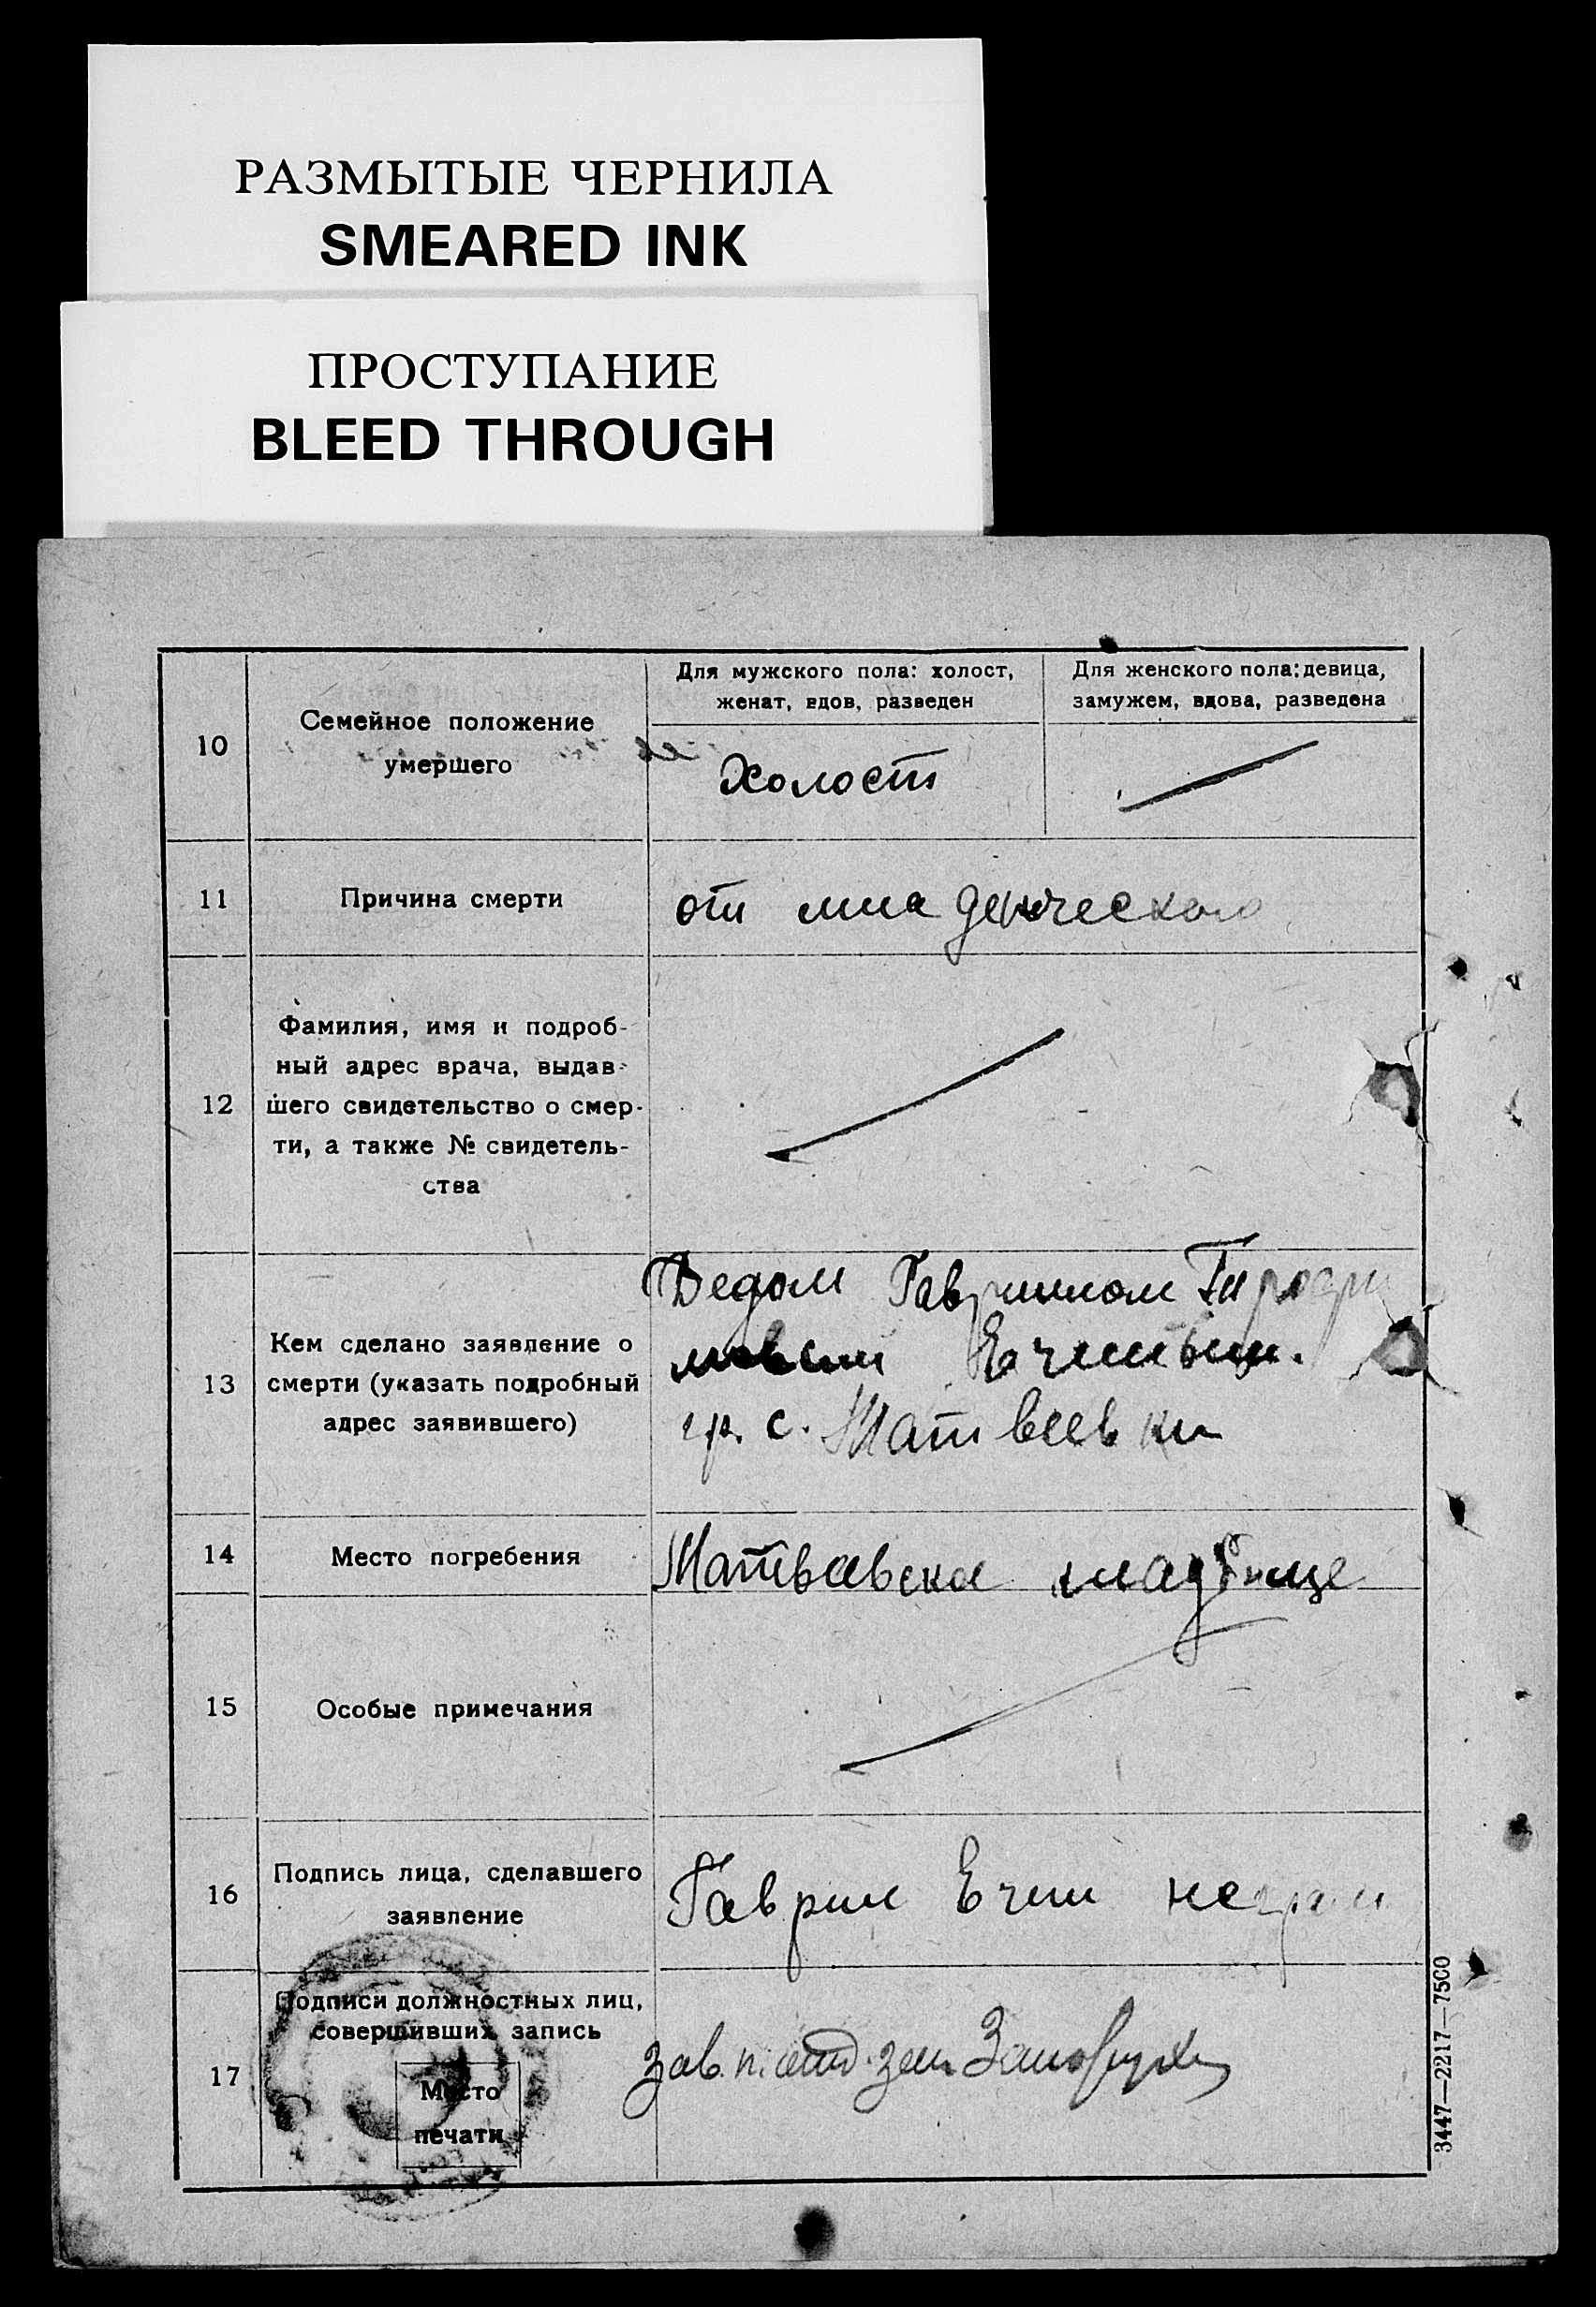 РАЗМЫТЫЕ ЧЕРНИЛА
SMEARED INK
ПРОСТУПАНИЕ
BLEED THROUGH
10
Семейное положение
умершего
Для мужского пола: холост,
женат, вдов, разведен
Для женского пола: девица,
замужем, вдова, разведена
Холост
11
Причина смерти
от мла денческого
12
Фамилия, имя и подроб-
ный адрес врача, выдав-
шего свидетельство о смер-
ти, а также № свидетель-
ства
13
Кем сделано заявление о
смерти (указать подробный
адрес заявившего)
Дедом
гр. с. Матвеевки
14
Место погребения
кладбище
15
Особые примечания
16
Подпись лица, сделавшего
заявление
Гаврил Ечин неграм
17
Подписи должностных лиц,
совершивших запись
Место
печати
зав.
3447—2217—7500